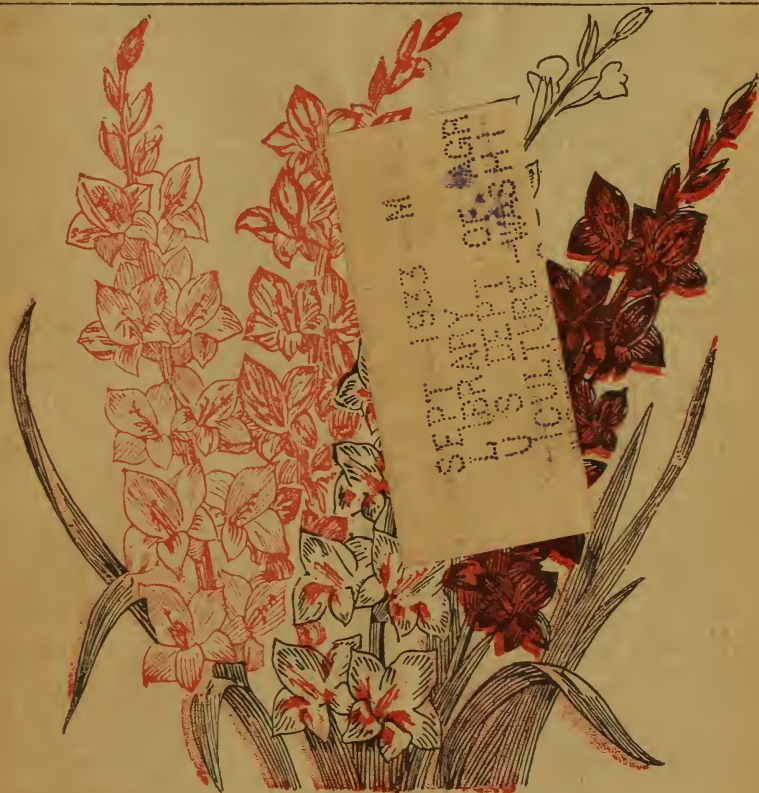 SEPT 1933 M
LIBRARY
U S DEPT OF AGR
ICULTURE WASHI